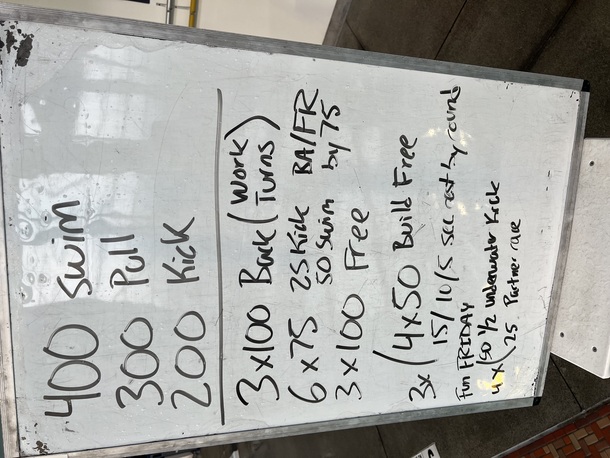 400 Swim
300 Pull
200 Kick
3x100 Back (Work Turns)
6x75 25 Kick BA/FR
50 Swim by 75
3x100 Free
3x (4x50 Build Free
15/10/5 sec rest by round
Fun FRIDAY
4x (50 1/2 underwater Kick
25 Partner race